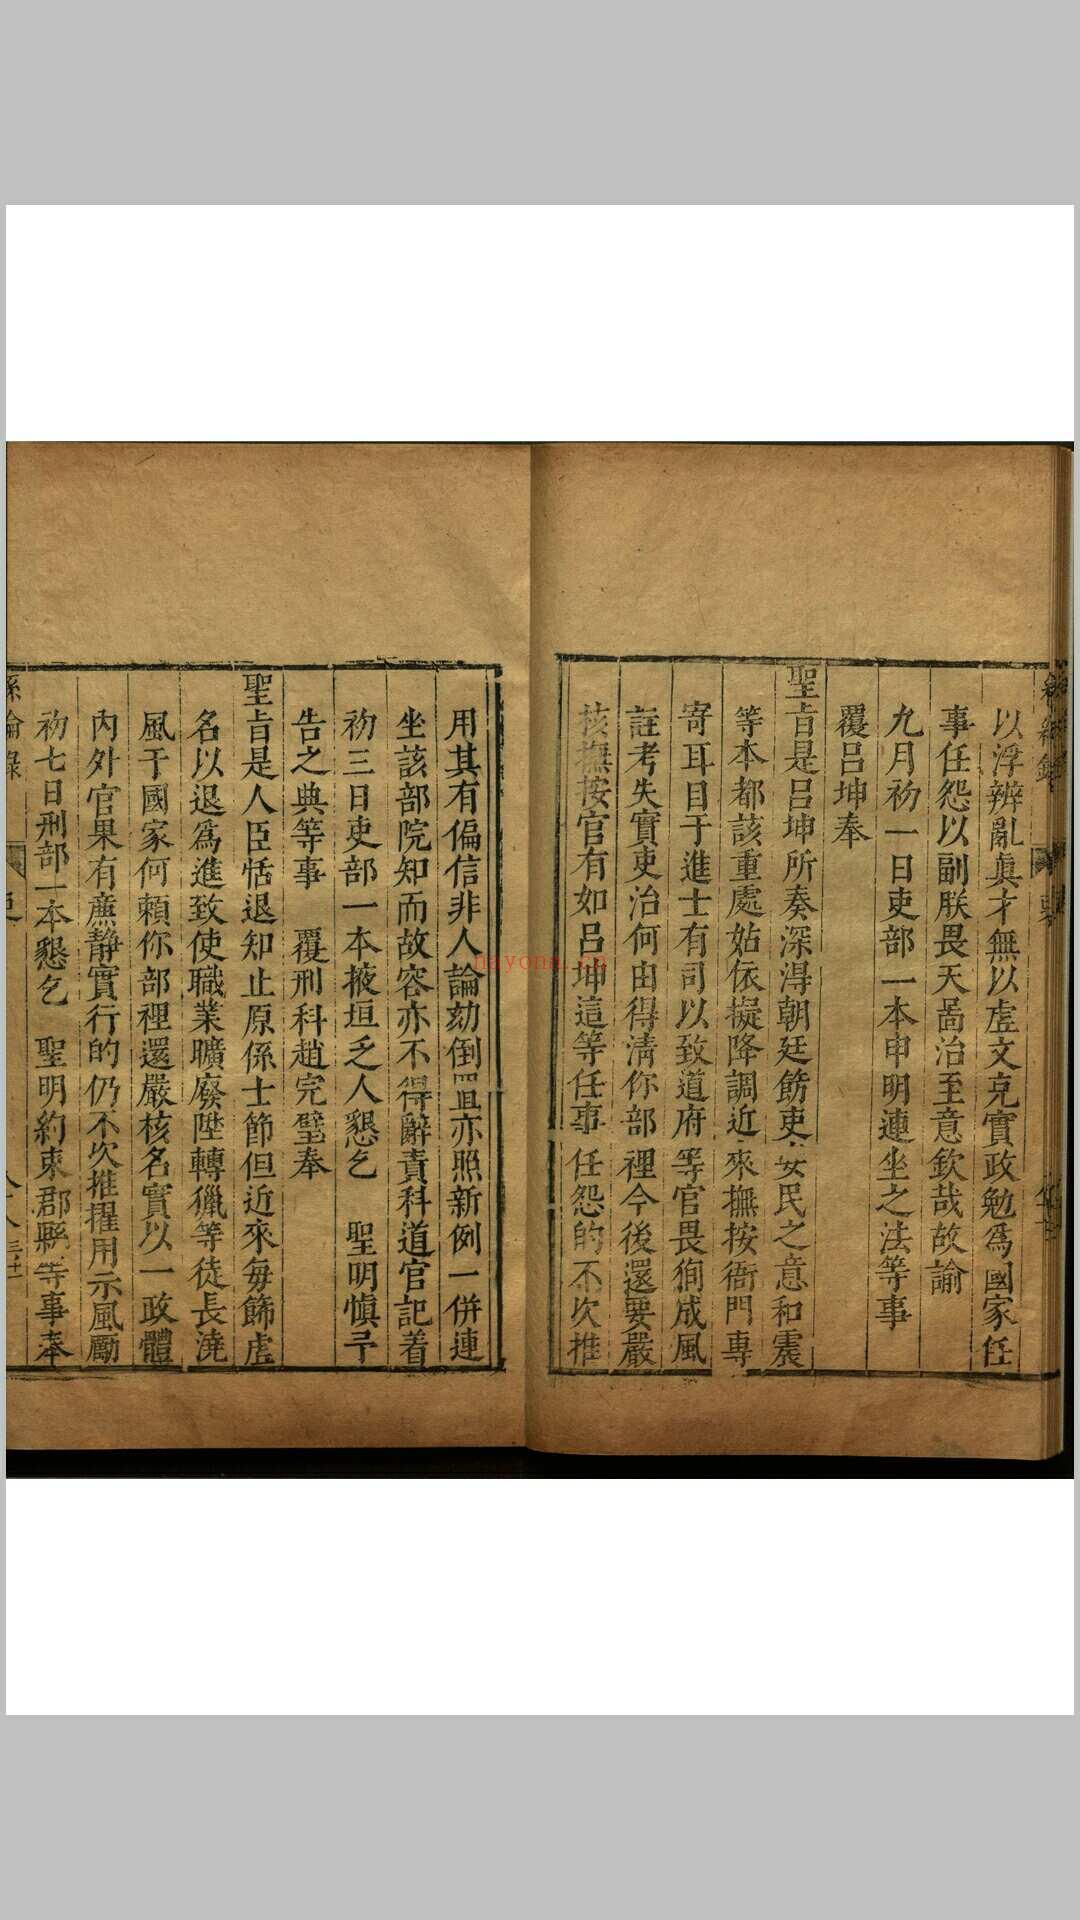 以浮辨亂真才無以虛文克實政勉爲國家任
事任怨以副朕畏天啚治至意欽哉故諭
九月初一日吏部一本申明連坐之法等事
覆呂坤奉
聖旨是呂坤所奏深淂朝廷飭吏安民之意和震
等本都該重處姑依擬降調近來撫按衙門專
寄耳目于進士有司以致道府等官畏狥成風
註考失實吏治何由得清你部裡今後還要嚴
核撫按官有如呂坤這等任事任怨的不次推
用其有偏信非人論劾倒置亦照新例一併連
坐該部院知而故容亦不得辭責科道官記着
初三日吏部一本掖垣乏人懇乞 聖明慎予
告之典等事 覆刑科趙完璧奉
聖旨是人臣恬退知止原係士節但近來每飾虛
名以退爲進致使職業曠廢陞轉獵等徒長澆
風于國家何賴你部裡還嚴核名實以一政體
內外官果有廉靜實行的仍不次推擢用示風勵
初七日刑部一本懇乞 聖明約束郡縣等事奉
絲綸錄
nayona.cn